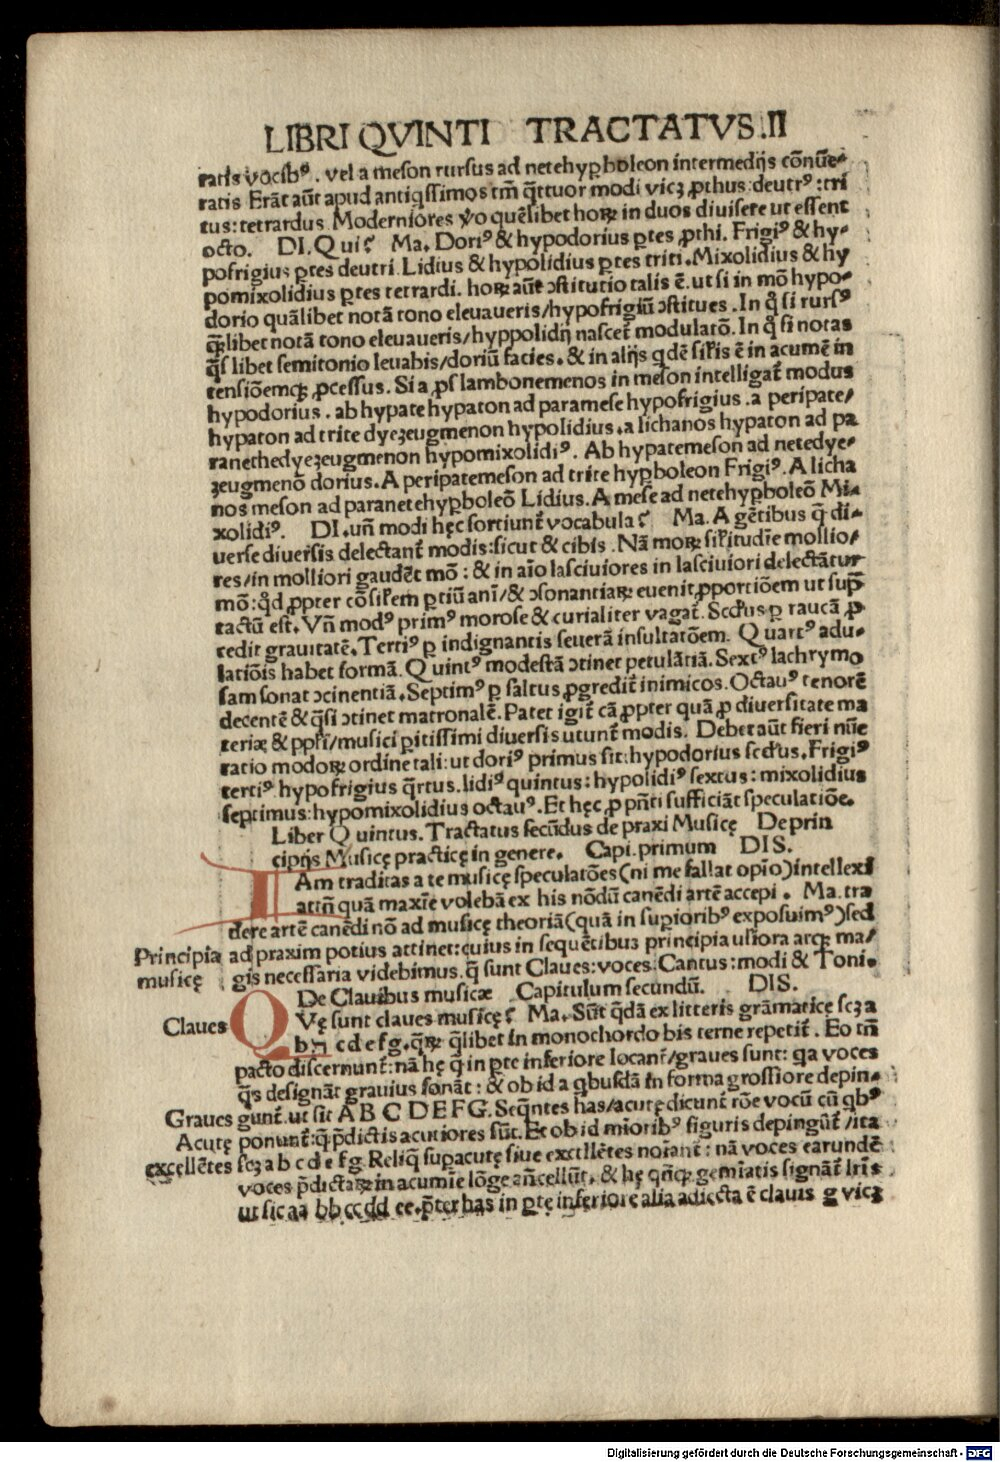 LIBRI QVINTI TRACTATVS.II
ratis vocibꝰ. vel a meson rursus ad netehyꝑboleon intermedijs cõnũe⸗
ratis Erãt aũt apud antiqssimos tm̃ q̃ttuor modi vicȝ ꝓthus:deutrꝰ:tri
tus:tetrardus. Moderniores ṽo quẽlibet hoꝝ in duos diuisere ut essent
octo. DI. Qui? Ma. Doriꝰ & hypodorius ꝑtes ꝓthi. Frigiꝰ & hy⸗
pofrigius ꝑtes deutri. Lidius & hypolidius ꝑtes triti. Mixolidius & hy
pomixolidius ꝑtes tetrardi. hoꝝ aũt ↄstitutio talis ẽ. ut si in mõ hypo⸗
dorio quãlibet notã tono eleuaueris/hypofrigiũ ↄstitues. In q̃ si rursꝰ
q̃libet notã tono eleuaueris/hyppolidij nascet̃ modulatõ. In q̃ si notas
q̃s libet semitonio leuabis/doriũ facies. & in alijs qdẽ sil̃is ẽ in acumẽ in
tensiõemqꝫ ꝓcessus. Si a ꝓslambonemenos in meson intelligat̃ modus
hypodorius. ab hypate hypaton ad paramese hypofrigius. a peripate/
hypaton ad trite dyeȝeugmenon hypolidius. a lichanos hypaton ad pa
ranethedyeȝeugmenon hypomixolidiꝰ. Ab hypatemeson ad netedye⸗
ȝeugmenõ dorius. A peripatemeson ad trite hyꝑboleon Frigiꝰ. A licha
nos meson ad paranetehyꝑboleõ Lidius. A mese ad netehyꝑboleõ Mi⸗
xolidiꝰ. DI. uñ modi hęc sortiunt̃ vocabula? Ma. A gẽtibus q̃ di⸗
uerse diuersis delectant̃ modis:sicut & cibis. Nã moꝝ sil̃itudĩe mollio/
res/in molliori gaudẽt mõ: & in aĩo lasciuiores in lasciuiori delectãtur
mõ: qd̃ ꝓpter cõsil̃em ꝑtiũ anĩ/& ↄsonantiaꝝ euenit ꝓportiõem ut sup̃
tactũ est. Vñ modꝰ primꝰ morose & curialiter vagat̃. Scd̃us ꝑ raucã ꝓ
cedit grauitatẽ. Tertiꝰ ꝑ indignantis seuerã insultatõem. Quartꝰ adu⸗
latiõis habet formã. Quintꝰ modestã ↄtinet petulãtiã. Sextꝰ lachrymo
sam sonat ↄcinentiã. Septimꝰ ꝑ saltus ꝓgredit̃ inimicos. Octauꝰ tenorẽ
decentẽ & q̃si ↄtinet matronalẽ. Patet igit̃ cã ꝓpter quã ꝓ diuersitate ma
teriæ & ppl̃i/musici ꝑitissimi diuersis utunt̃ modis. Debet aũt fieri nũe
ratio modoꝝ ordine tali: ut doriꝰ primus sit:hypodorius scd̃us. Frigiꝰ
tertiꝰ hypofrigius q̃rtus. lidiꝰ quintus: hypolidiꝰ sextus: mixolidius
septimus: hypomixolidius octauꝰ. Et hęc ꝓ pñti sufficiãt speculatiõe.
Liber Quintus. Tractatus secũdus de praxi Musicę De prin
cipijs Musicę practicę in genere. Capi. primum DIS.
IAm traditas a te musicę speculatões (ni me fallat opĩo) intellexi
attñ quã maxĩe volebã ex his nõdũ canẽdi artẽ accepi. Ma. tra
dere artẽ canẽdi nõ ad musicę theoriã (quã in suꝑioribꝰ exposuimꝰ) sed
Principia ad praxim potius attinet: cuius in sequẽtibus principia usiora atqꝫ ma/
musicę gis necessaria videbimus. q̃ sunt Claues: voces: Cantus: modi & Toni.
De Clauibus musicæ Capitulum secundũ. DIS.
Claues QVę sunt claues musicę? Ma. Sũt qdã ex litteris grãmaticę scȝ a
b ♮ c d e f g. q̃ꝝ q̃libet in monochordo bis terne repetit̃. Eo tm̃
pacto discernunt̃: nã hę q̃ in ꝑte inferiore locant̃/graues sunt: qa voces
q̃s designãt grauius sonãt: & ob id a qbusdã in forma grossiore depin⸗
Graues gunt̃. ut sit A B C D E F G. Seq̃ntes has/acutę dicunt̃ rõe vocũ cũ qbꝰ
Acutę ponunt̃: q̃ p̃dictis acutiores sũt. Et ob id miorib⁹ figuris depingũt̃/ita
excellẽtes scȝ a b c d e f g. Reliq̃ suꝑacutę siue excellẽtes noĩant̃: nã voces earundẽ
voces p̃dictaꝝ in acumĩe lõge añcellũt. & hę qñqꝫ gemĩatis signãt̃ lr̃is
ut sic aa bb cc dd ee. p̃ter has in ꝑte inferiore alia adiecta ẽ clauis g vicȝ
Digitalisierung gefördert durch die Deutsche Forschungsgemeinschaft - DFG